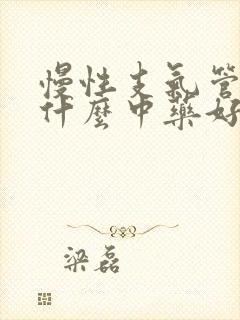 慢性支氣管
什麼中藥好
梁磊